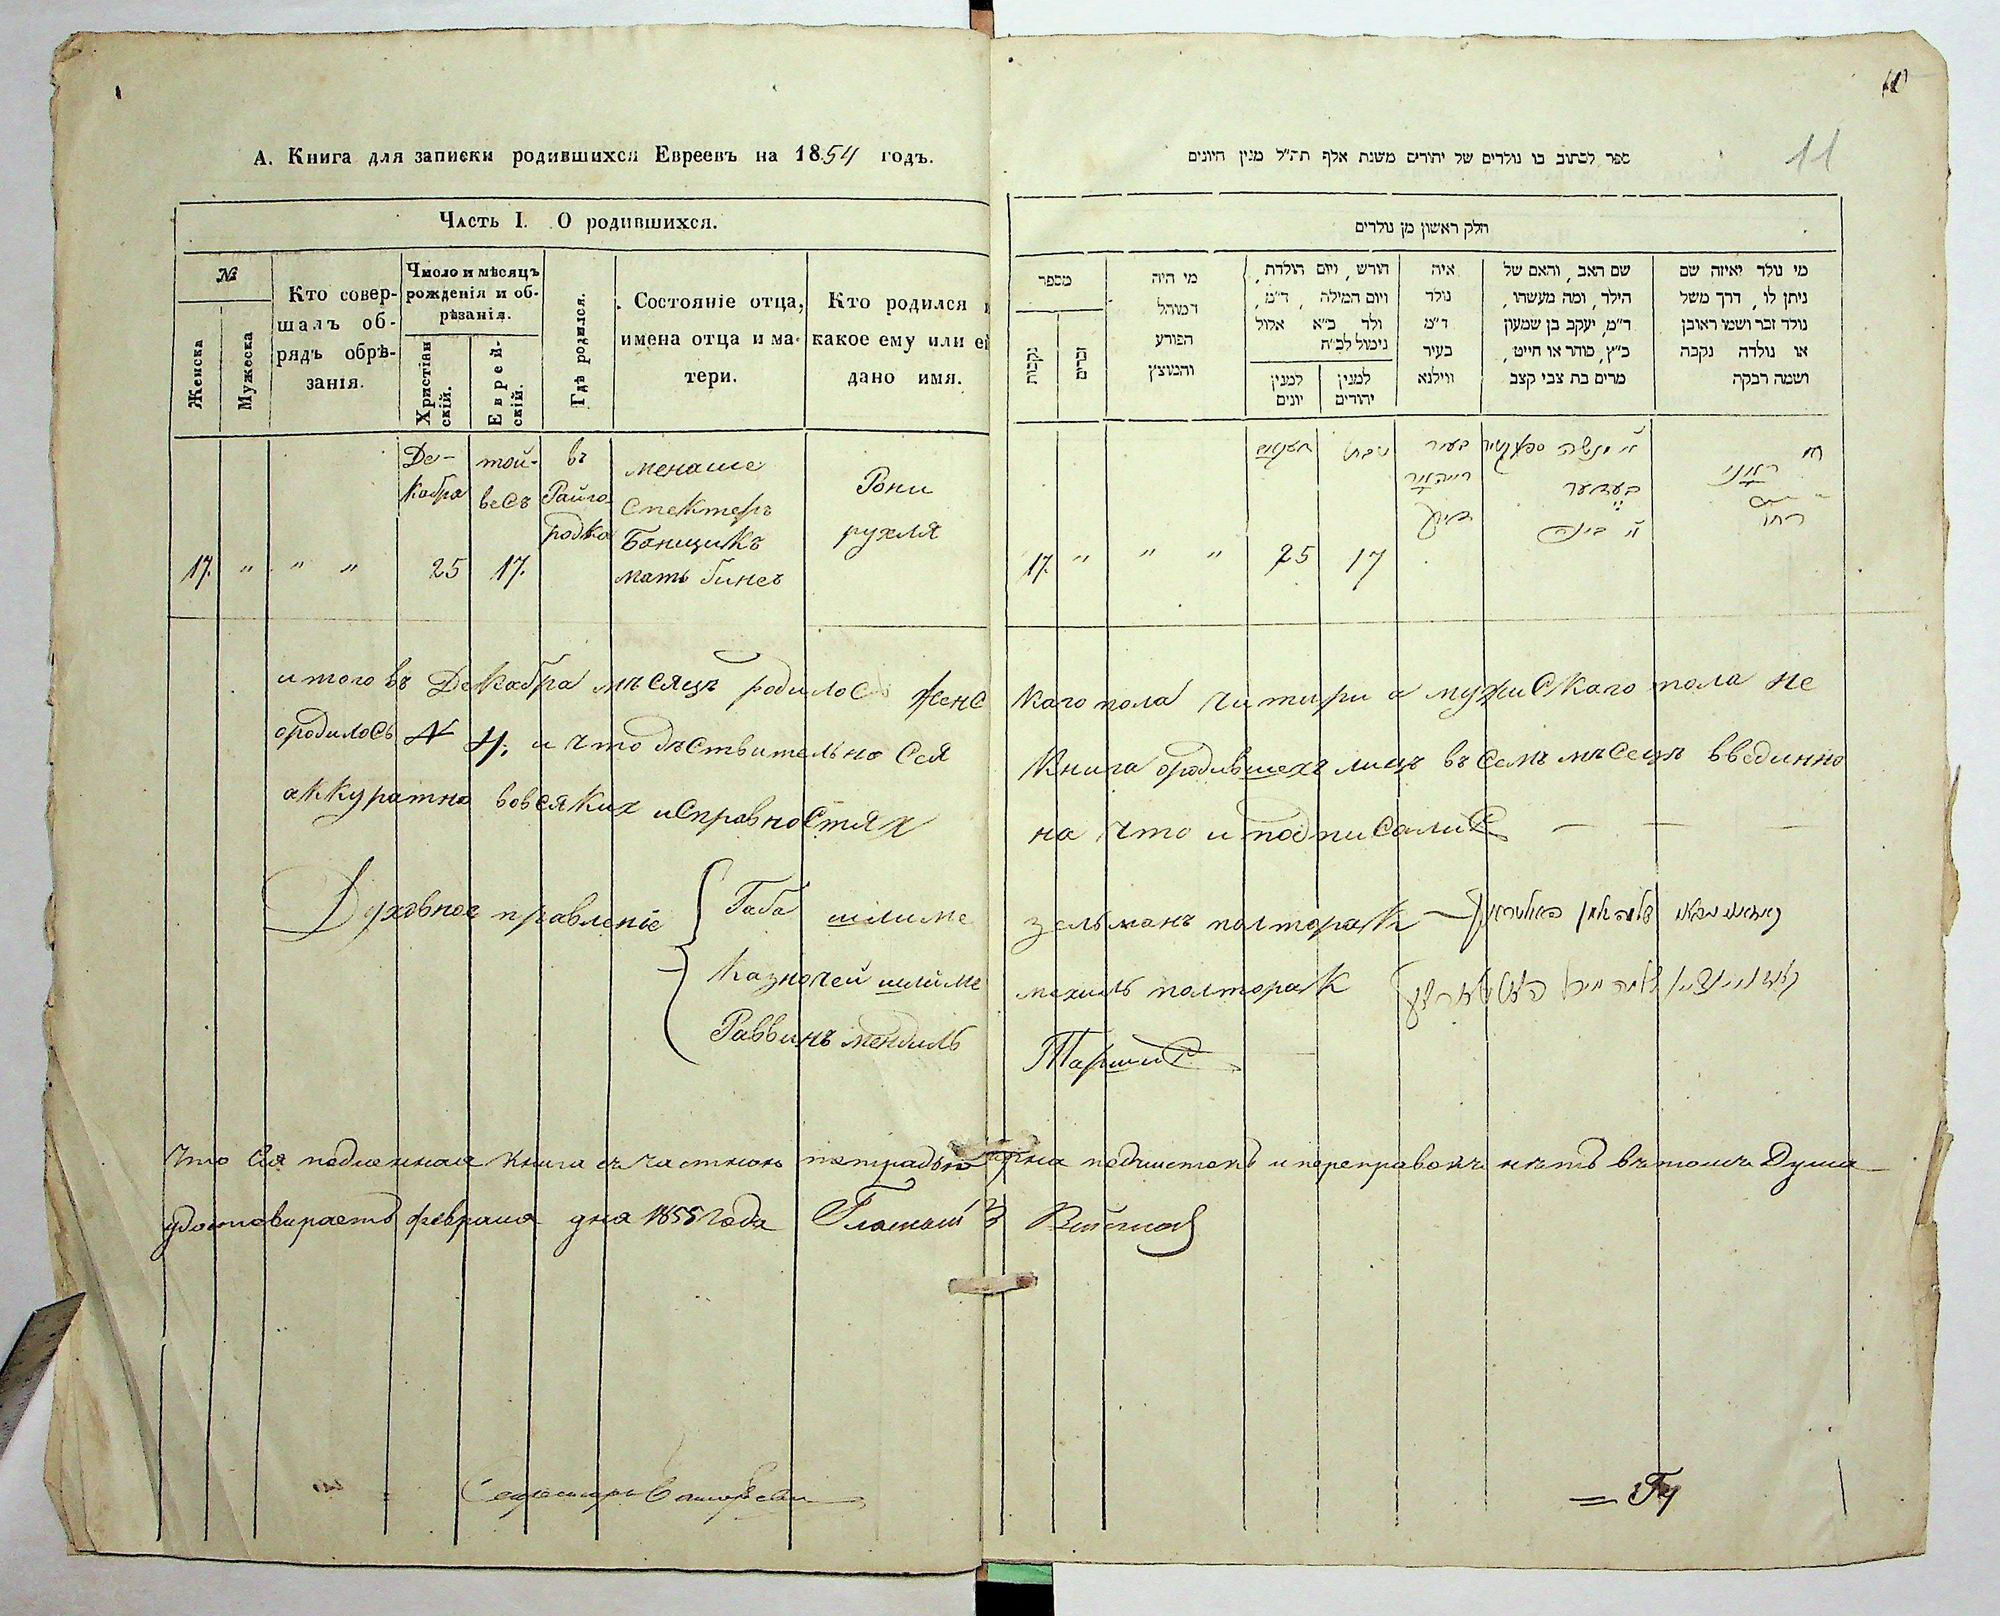 11
А. Книга для записки родившихся Евреевъ на 1854 годъ.
Часть I. О родившихся.
№
Женска
Мужеска
Кто совер-
шалъ об-
рядъ обрѣ-
занія.
Число и мѣсяцъ
рожденія и об-
рѣзанія.
Христіан
скій.
Еврей-
скій.
Гдѣ родился.
Состояніе отца,
имена отца и ма-
тери.
Кто родился и
какое ему или ей
дано имя.
Де-
кабра
25
той-
весъ
17.
въ
Райго-
родка
менаше
спектеръ
Банщикъ
мать бинея
Рони
рухля
17. " " "
ספר לכתוב בו נולדים של יהודים משנת אלף תת״ל מנין היונים
חלק ראשון מן נולדים
מספר
נקבות
זכרים
מי היה
המוהל
הפורע
והמוצץ
חודש, ויום הולדת,
ויום המילה, ד״מ,
ולד כ״א אלול
נימול לכ״ח
למנין
יונים
למנין
יהודים
איה
נולד
ד״מ
בעיר
ווילנא
שם האב, והאם של
הילד, ומה מעשהו,
ד״מ, יעקב בן שמעון
כ״ץ, סוחר או חייט,
מרים בת צבי קצב
מי נולד ואיזה שם
ניתן לו, דרך משל
נולד זכר ושמו ראובן
או נולדה נקבה
ושמה רבקה
17. " " " 25 17
итого въ Декабра мѣсяцъ родилось женс каго пола читири а мужискаго пола не
ородилось 4. и что дѣствительно сея Книга ородившехъ лицъ въ семъ мѣсецъ введинно
аккуратно вовсяких исправностях на что и подписались — — —
Духовное правленіе
Габа шлиме зельманъ полторак
Казночей шлиме мехиль полторак
Раввинъ мендиль Таршис
Что сія подленная книга съ частною тетрадью верна подчистокъ и переправокъ нѣтъ въ томъ Дума
удостовираетъ февраля дня 1855 года Гласный